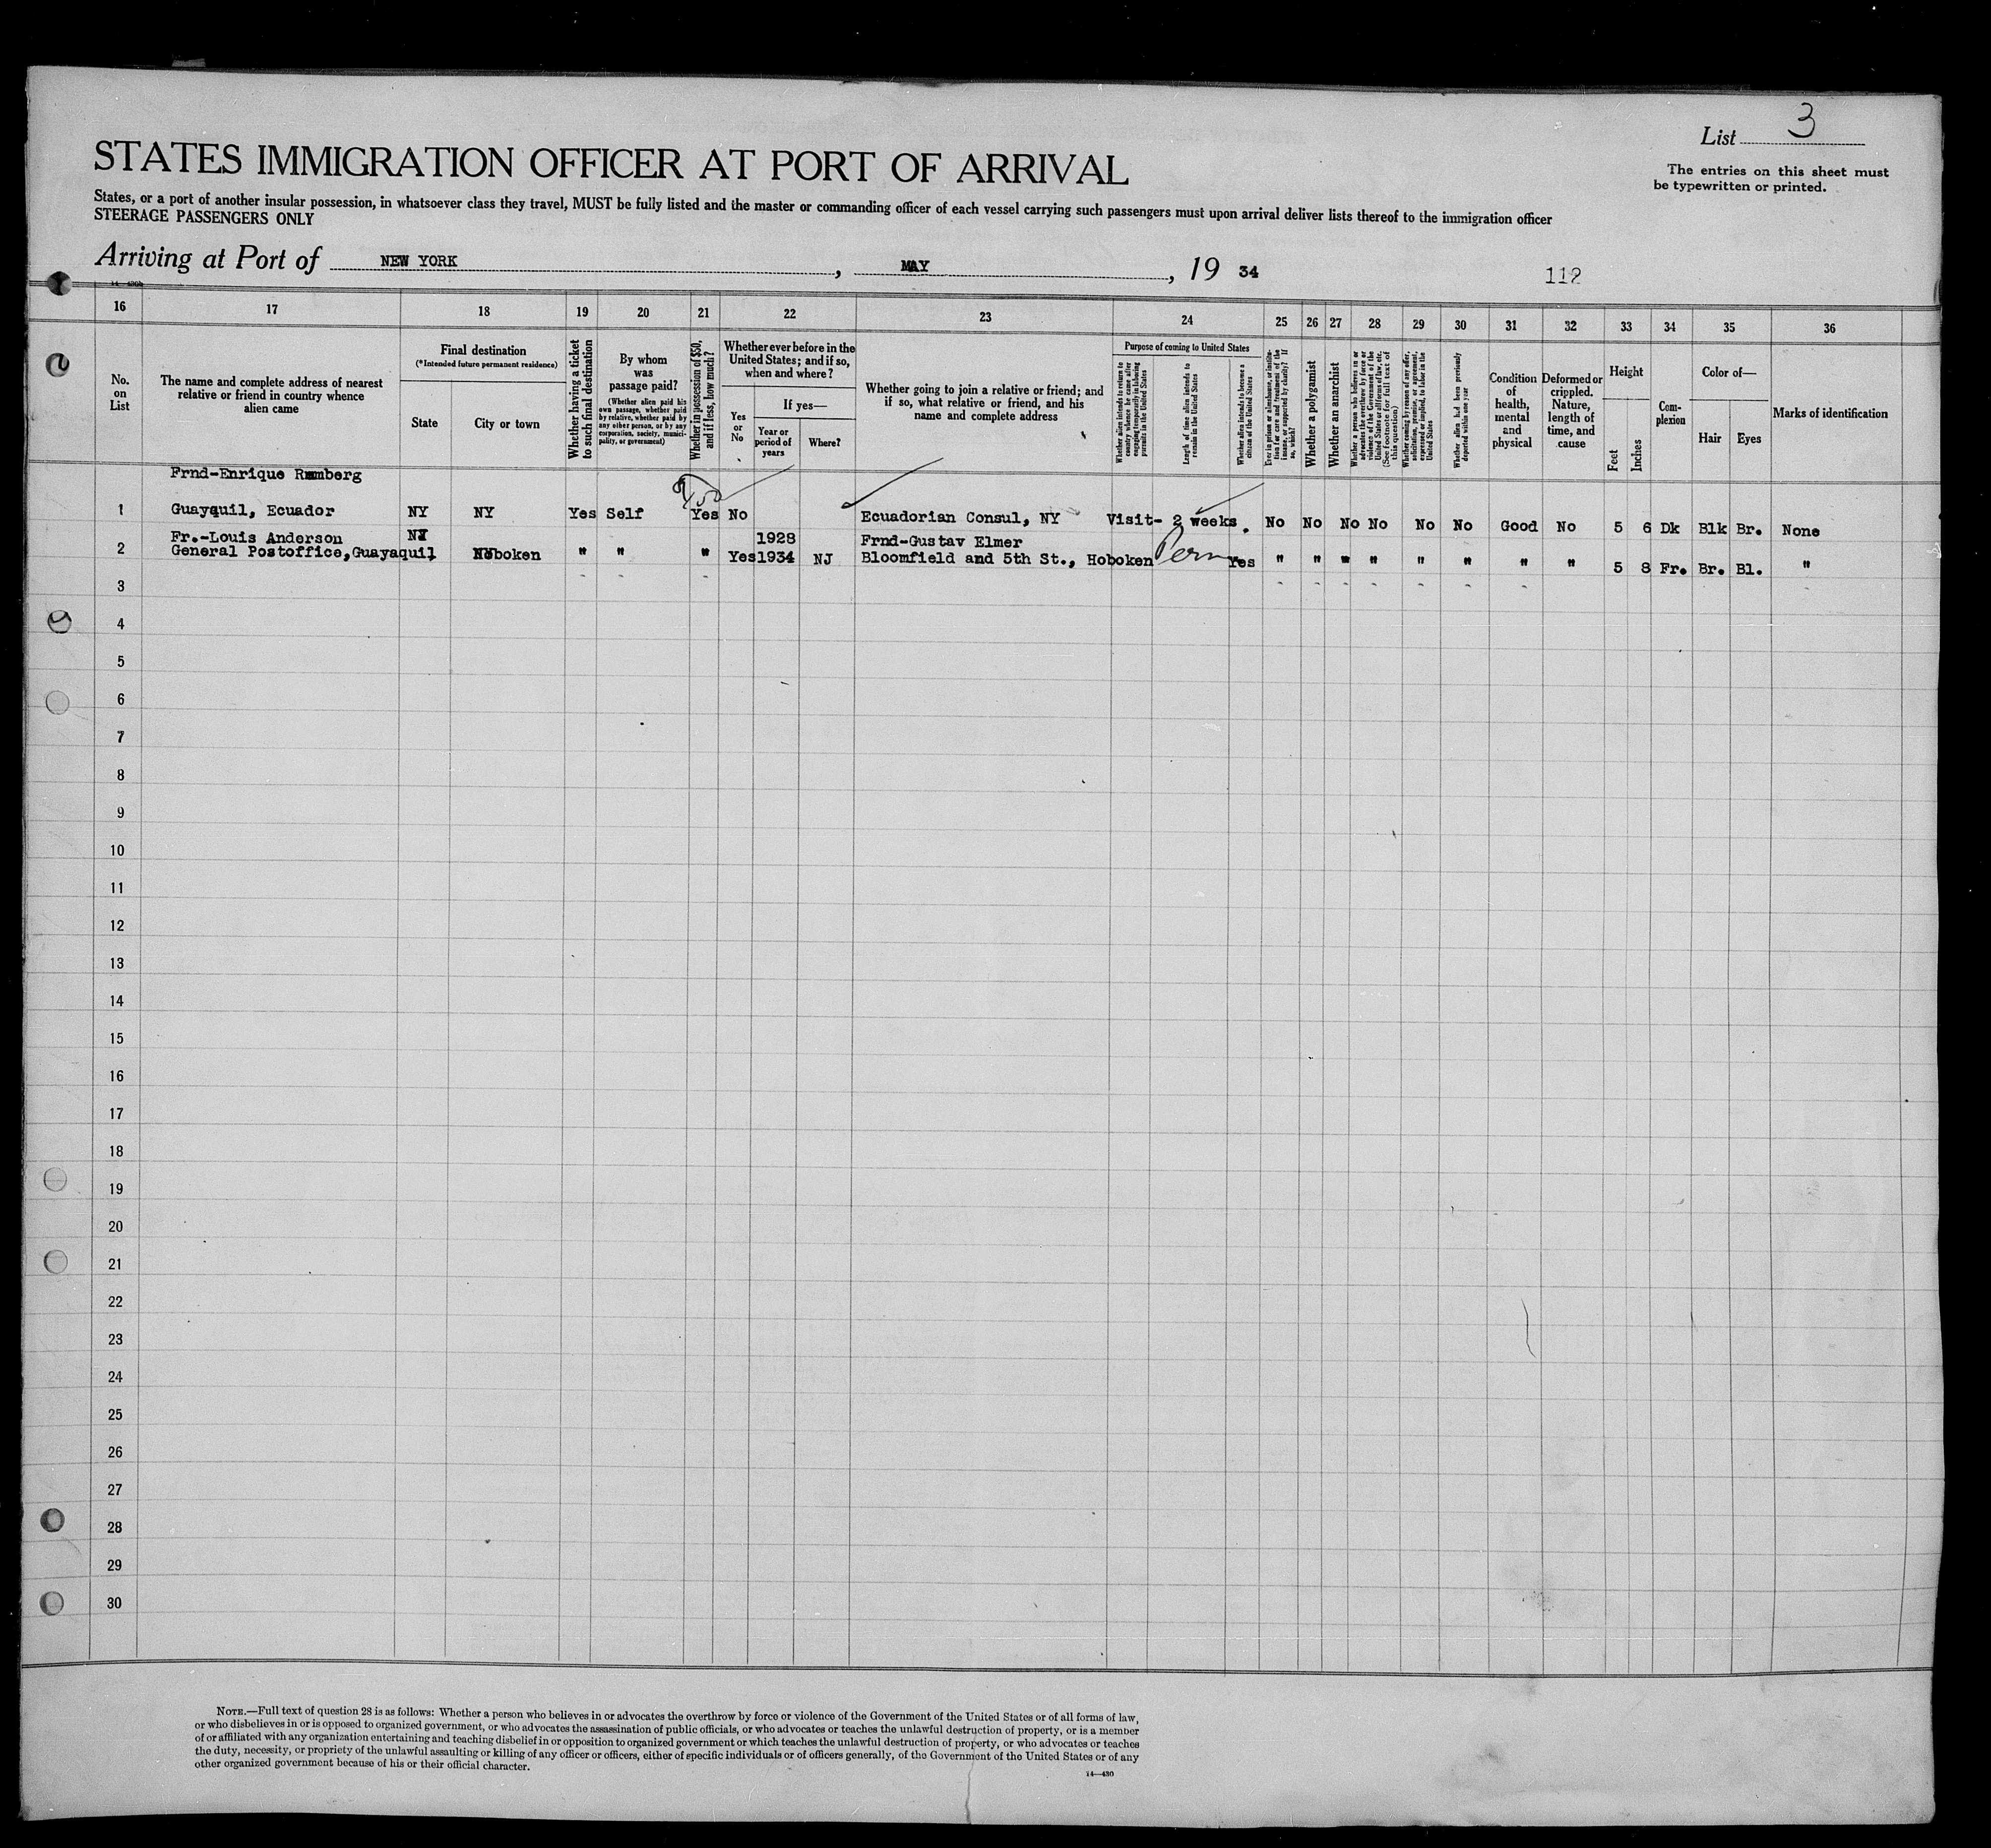 List 3
The entries on this sheet must
be typewritten or printed.
STATES IMMIGRATION OFFICER AT PORT OF ARRIVAL
States, or a port of another insular possession, in whatsoever class they travel, MUST be fully listed and the master or commanding officer of each vessel carrying such passengers must upon arrival deliver lists thereof to the immigration officer
STEERAGE PASSENGERS ONLY
Arriving at Port of NEW YORK, MAY, 19 34
112
16 17 18 19 20 21 22 23 24 25 26 27 28 29 30 31 32 33 34 35 36
No.
on
List
The name and complete address of nearest
relative or friend in country whence
alien came
Final destination
(*Intended future permanent residence)
State
City or town
Whether having a ticket
to such final destination
By whom
was
passage paid?
(Whether alien paid his
own passage, whether paid
by relative, whether paid by
any other person, or by any
corporation, society, munici-
pality, or government)
Whether in possession of $50,
and if less, how much?
Whether ever before in the
United States; and if so,
when and where?
Yes
or
No
If yes—
Year or
period of
years
Where?
Whether going to join a relative or friend; and
if so, what relative or friend, and his
name and complete address
Purpose of coming to United States
Whether alien intends to return to
country whence he came after
engaging temporarily in laboring
pursuits in the United States
Length of time alien intends to
remain in the United States
Whether alien intends to become a
citizen of the United States
Ever in prison or almshouse, or institu-
tion for care and treatment of the
insane, or supported by charity? If
so, which?
Whether a polygamist
Whether an anarchist
Whether a person who believes in or
advocates the overthrow by force or
violence of the Government of the
United States or all forms of law, etc.
(See footnote for full text of
this question)
Whether coming by reason of any offer,
solicitation, promise, or agreement,
expressed or implied, to labor in the
United States
Whether alien had been previously
deported within one year
Condition
of
health,
mental
and
physical
Deformed or
crippled.
Nature,
length of
time, and
cause
Height
Feet
Inches
Com-
plexion
Color of—
Hair
Eyes
Marks of identification
Frnd-Enrique Ramberg
$50
1 Guayquil, Ecuador NY NY Yes Self Yes No Ecuadorian Consul, NY Visit- 2 weeks. No No No No No No Good No 5 6 Dk Blk Br. None
Fr.-Louis Anderson NJ 1928 Frnd-Gustav Elmer
2 General Postoffice,Guayaquil, Hoboken " " " Yes 1934 NJ Bloomfield and 5th St., Hoboken Perm Yes " " " " " " " " 5 8 Fr. Br. Bl. "
3
4
5
6
7
8
9
10
11
12
13
14
15
16
17
18
19
20
21
22
23
24
25
26
27
28
29
30
NOTE.—Full text of question 28 is as follows: Whether a person who believes in or advocates the overthrow by force or violence of the Government of the United States or of all forms of law,
or who disbelieves in or is opposed to organized government, or who advocates the assassination of public officials, or who advocates or teaches the unlawful destruction of property, or is a member
of or affiliated with any organization entertaining and teaching disbelief in or opposition to organized government or which teaches the unlawful destruction of property, or who advocates or teaches
the duty, necessity, or propriety of the unlawful assaulting or killing of any officer or officers, either of specific individuals or of officers generally, of the Government of the United States or of any
other organized government because of his or their official character.
14—430